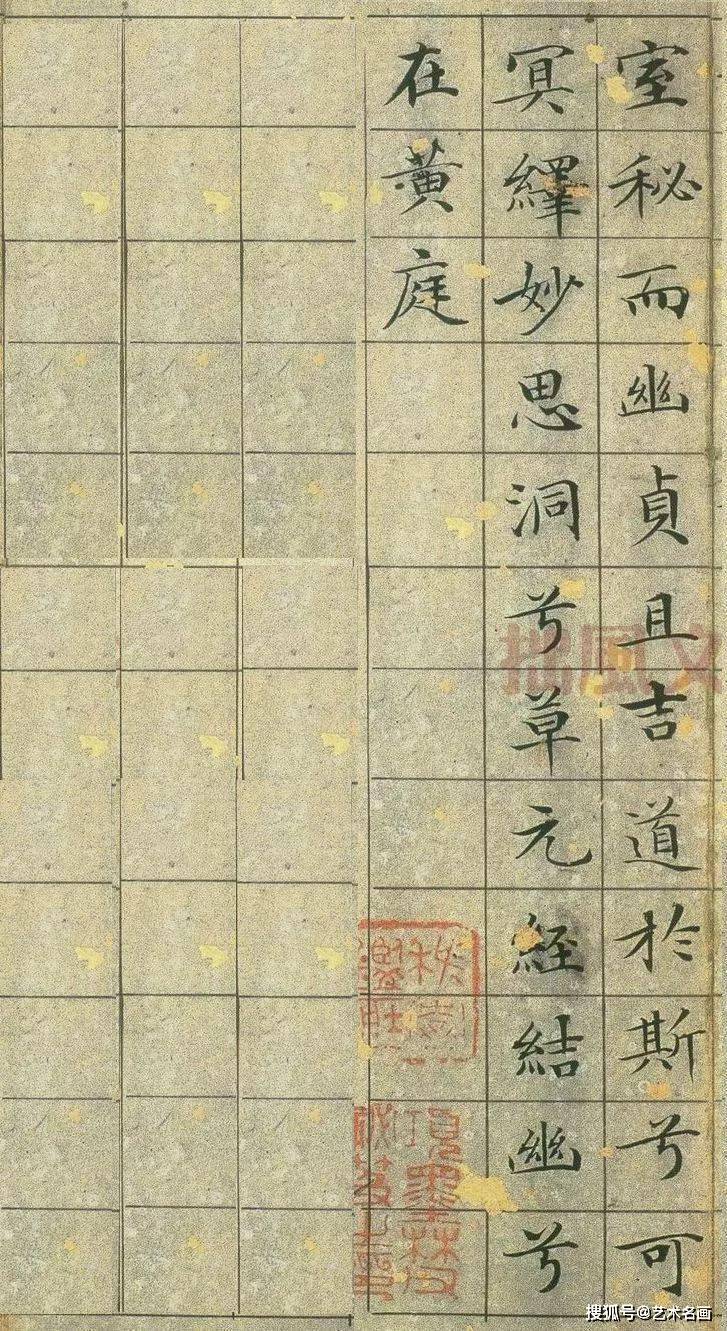 室秘而幽貞且吉道於斯兮可
冥繹妙思洞兮草元經結幽兮
在黃庭
項墨林父
拙風文
搜狐号@艺术名画